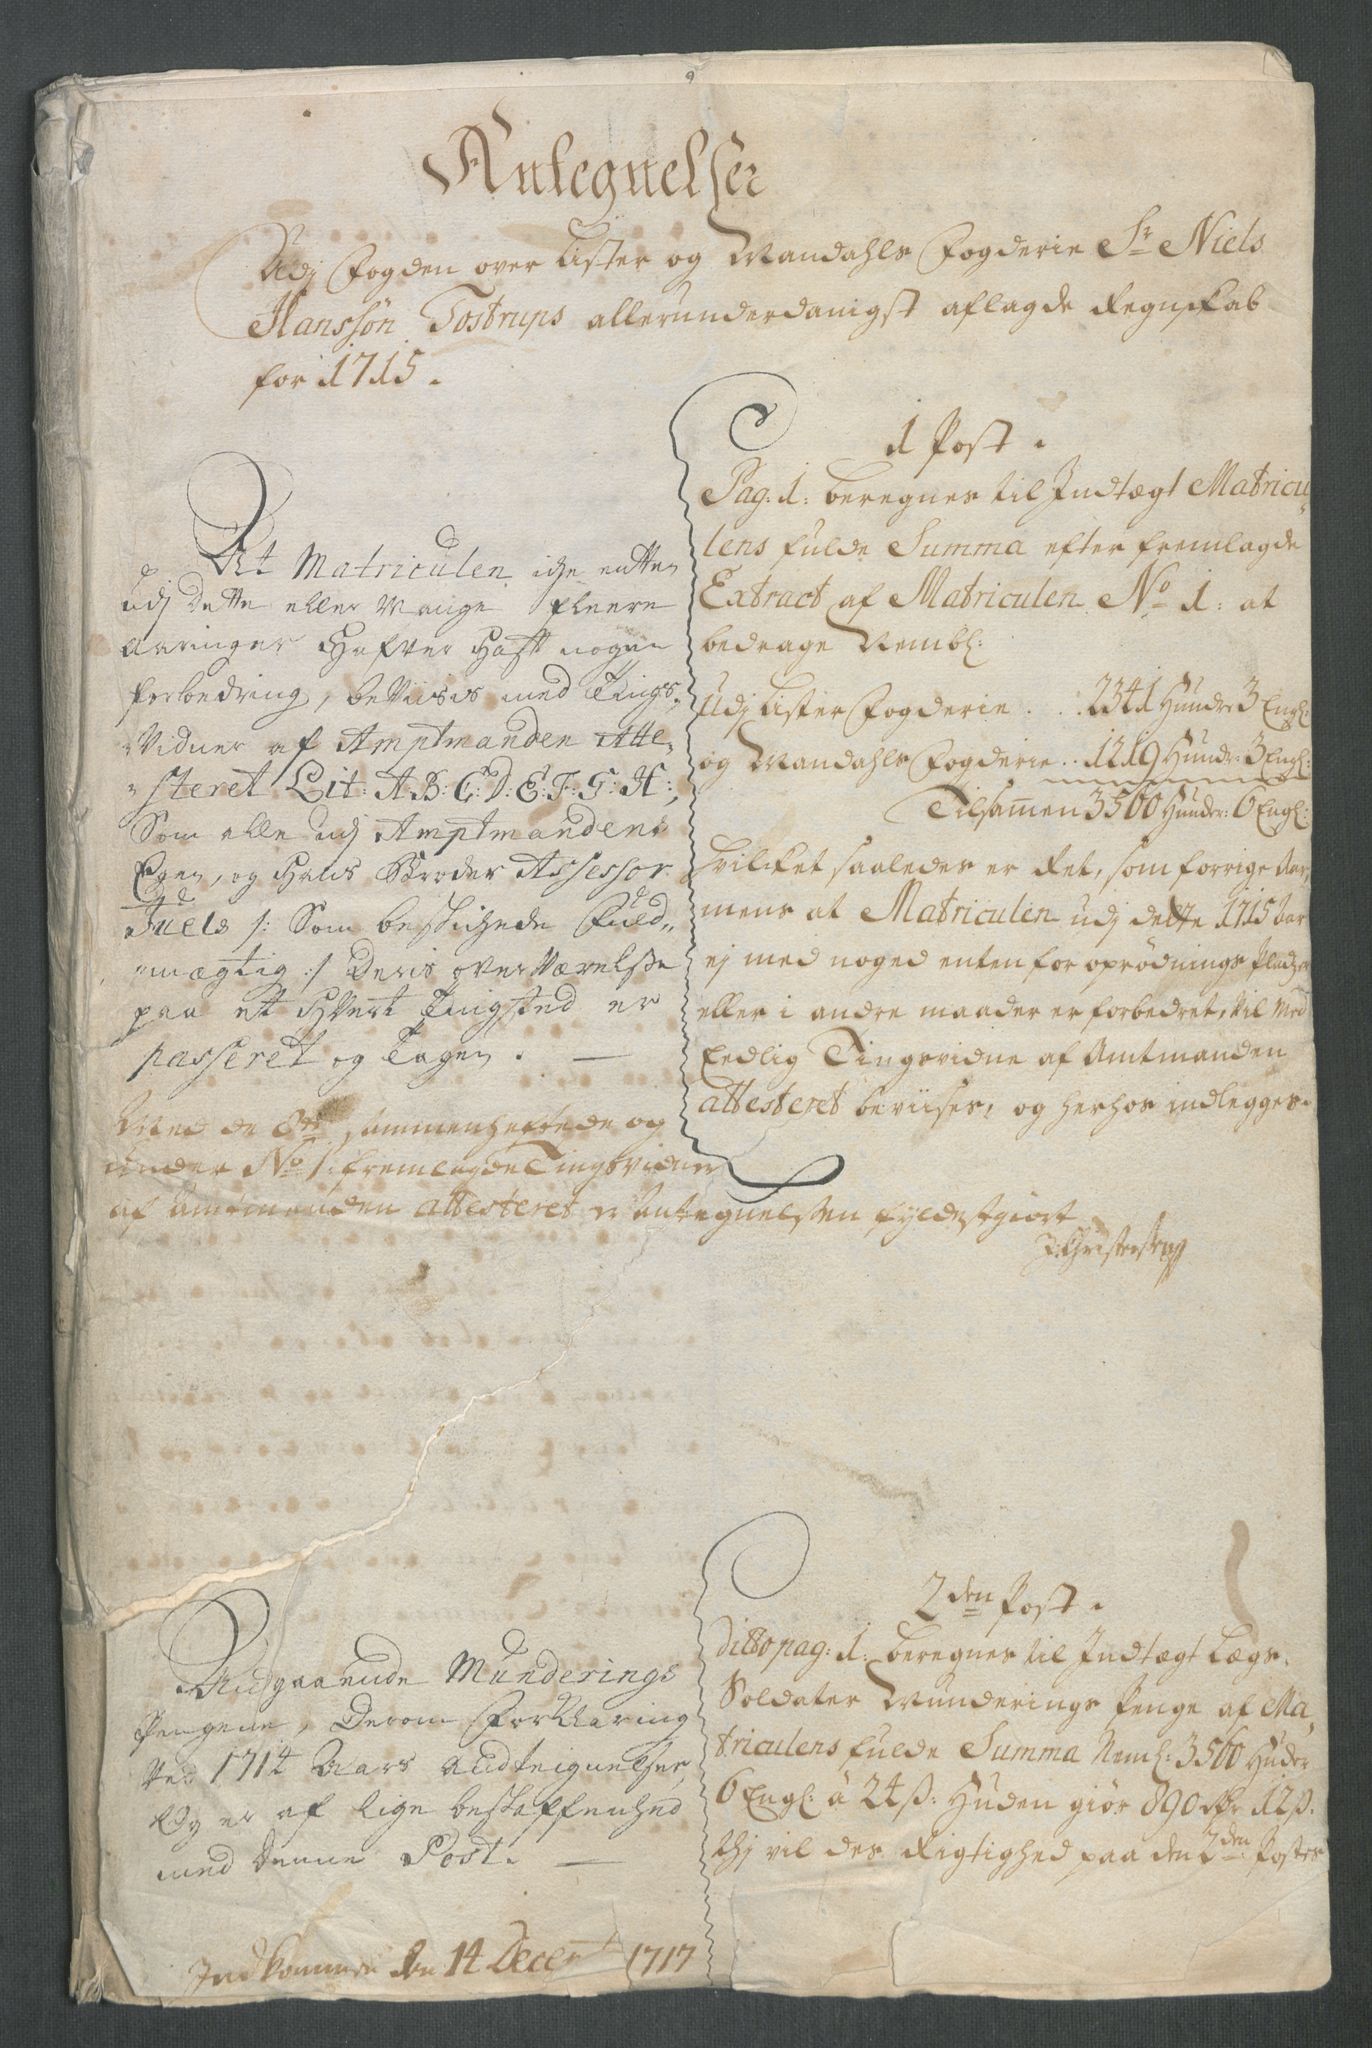 Antegnelser
Udj Fogden over Lister og Mandahls Fogderie Sr Niels
Hanssön Tostrups allerunderdanigst aflagde Regnskab
for 1715.
1 Post.
Pag: 1: beregnes til Indtægt Matricu„
lens fulde Summa efter fremlagde
Extract af Matriculen No 1: at
bedrage Nembl:
Udj Lister Fogderie . . . 2341 Hunder 3 Engl:
og Mandahls Fogderie . . 1219 Hunder: 3 Engl:
Tilsamen 3560 Hunder: 6 Engl:
hvilcket saaledes er det, som forrige Aar,
mens at Matriculen udj dette 1715 Aar
ej med noged enten for oprödnings Pladzer
eller i andre maader er forbedret, vil med
Eedlig Tingsvidne af Amtmanden
attesteret beviises, og herhos indlegges.
At Matriculen iche enten
udj dette eller Mange fleere
Aaringer hafver hafft nogen
forbedring, beViises med Tings„
„Vidner af Amptmanden Atte„
„steret Lit: A: B: C: D: E: F: G: H:,
Som alle udj Amptmandens
Egen, og hans Broder Assessor
Juels /: Som beskichede Fuld„
„mægtig :/ Deris overværelse
paa et hvert Tingsted er
passeret og Tagen. —
Med de 8te sammenheftede og
under No 1: fremlagde Tingsvidner
af Amtmanden attesteret er Antegnelssen fyldestgiort
2den Post.
ditto pag: 1: beregnes til Indtægt Lægs„
Soldater Munderings Penge af Ma„
triculens fulde Summa Neml: 3560 Huder
6 Engl: â 24 ß: Huden giör 890 Rdr 12 ß.
thj vil des Rigtighed paa den 2den Postes
Andgaaende Munderings
Pengene, Derom Forklaring
Ved 1714 Aars Andteignelser,
Og er af lige beskaffenhed
med Denne Post. —
Indkommen den 14 Decembr 1717